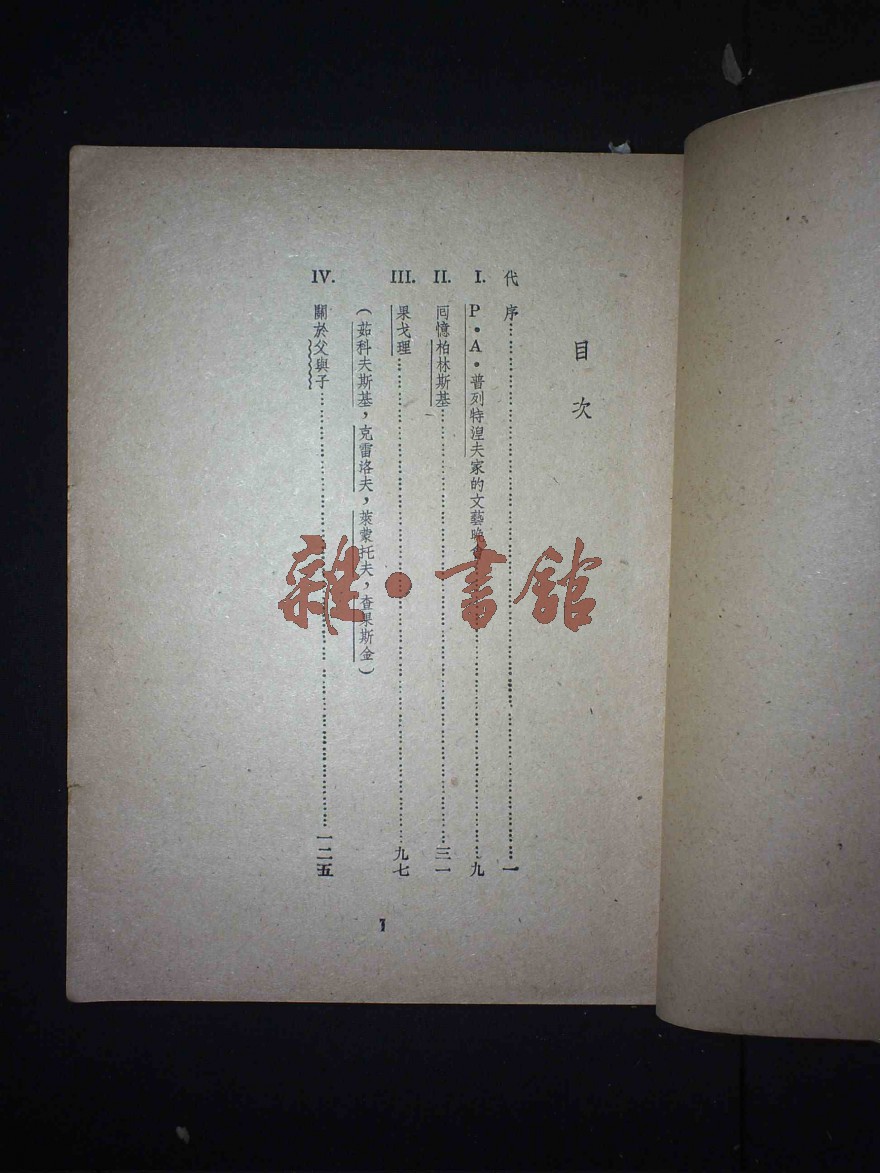 目次
代序……一
I. P・A・普列特涅夫家的文藝晚會……九
II. 囘憶柏林斯基……三一
III. 果戈理……九七
(茹科夫斯基，克雷洛夫，萊蒙托夫，查果斯金)
IV. 關於父與子……一二五
雜・書館